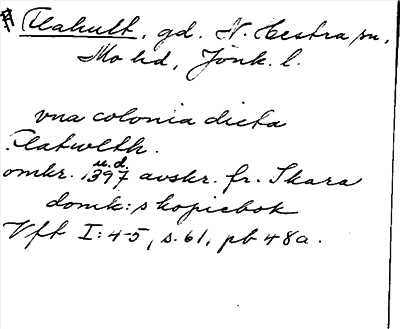 Flahult, gd. N. Hestra sn,
Mo hd, Jönk. l.
vna colonia dicta
Flatwlth.
omkr. 1397 u.d. avskr. fr. Skara
domk:s kopiebok
Vft I:4-5, s. 61, pb 48a.